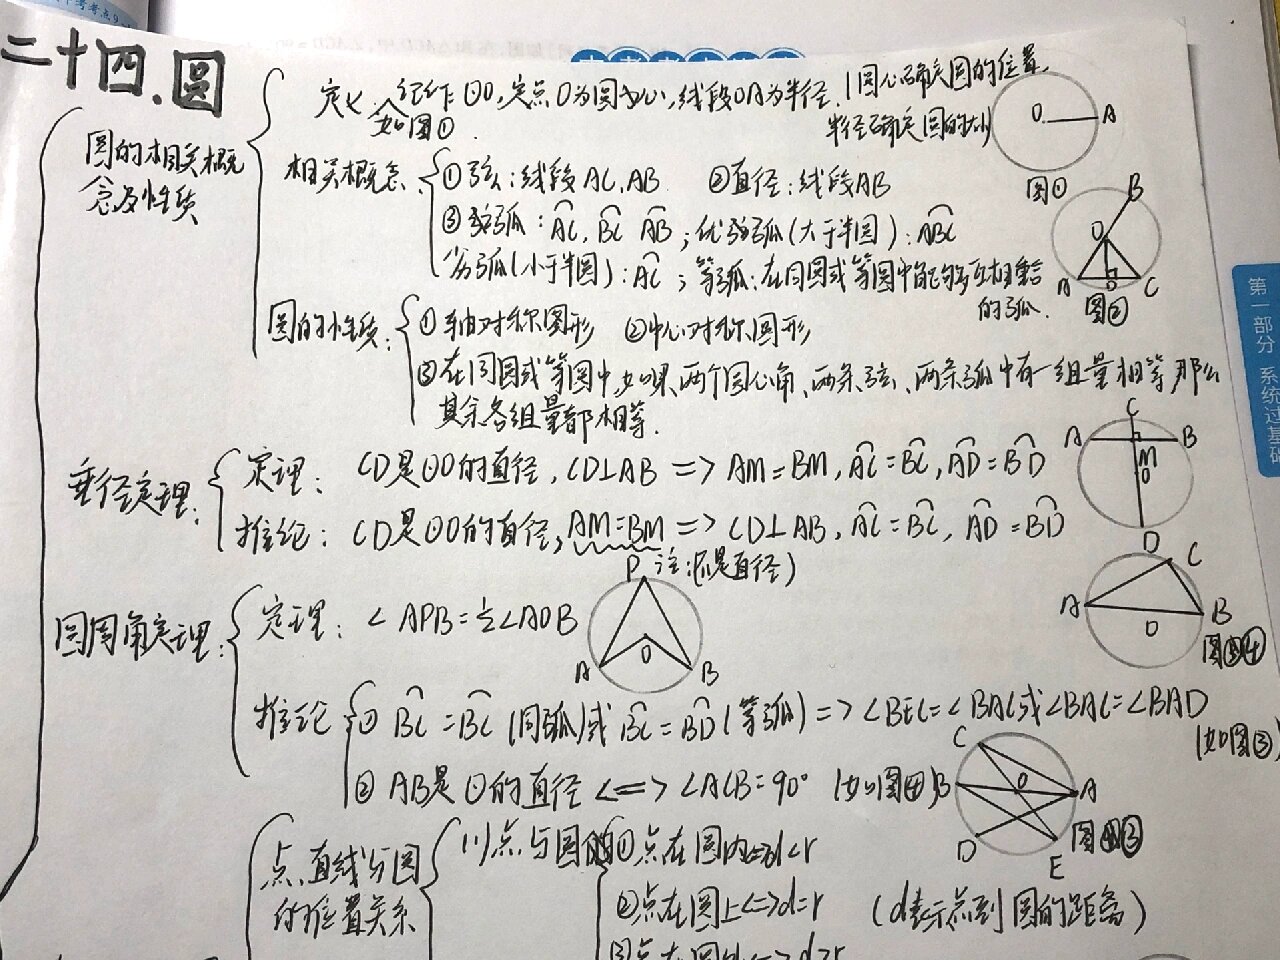 二十四.圆
圆的相关概
念及性质
定义:记作⊙O,定点O为圆心,线段OA为半径.
如图①.
圆心确定圆的位置,
半径确定圆的大小
O A
图①
相关概念
①弦:线段AC,AB ②直径:线段AB
③弧:A͡C, B͡C A͡B;优弧(大于半圆):A͡BC
劣弧(小于半圆):A͡C;等弧:在同圆或等圆中能够互相重合
的弧.
B O A D C
图②
圆的性质:
①轴对称图形 ②中心对称图形
③在同圆或等圆中,如果两个圆心角、两条弦、两条弧中有一组量相等那么
其余各组量都相等.
垂径定理:
定理:CD是⊙O的直径,CD⊥AB => AM=BM,A͡C=B͡C,A͡D=B͡D
推论:CD是⊙O的直径,AM=BM => CD⊥AB,A͡C=B͡C,A͡D=B͡D
C A B M O D
圆周角定理:
定理:∠APB=½∠AOB
P A O B
A C B O
图④
推论
① B͡C=B͡C(同弧)或B͡C=B͡D(等弧)=>∠BEC=∠BAC或∠BAC=∠BAD
(如图③)
② AB是⊙的直径<=>∠ACB=90° (如图④)
C B O A D E
点、直线与圆
的位置关系
(1)点与圆
①点在圆内<=>d<r
②点在圆上<=>d=r (d表示点到圆的距离)
③点在圆外<=>d>r
第一部分 系统过基础